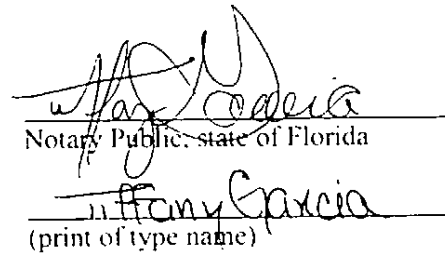 Tiffany Garcia
Notary Public, state of Florida
Tiffany Garcia
(print of type name)